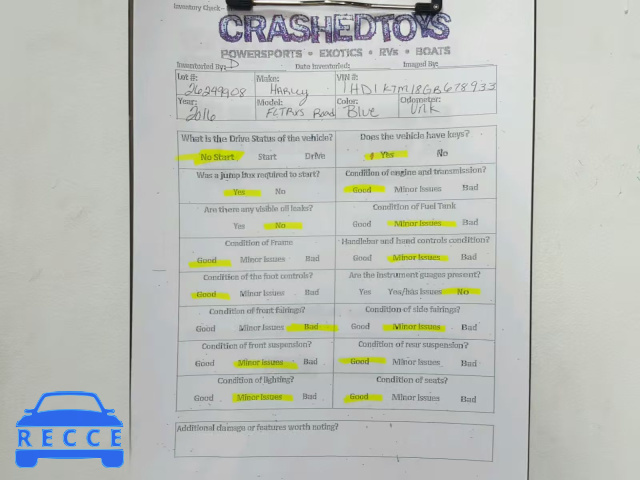 Inventory Check -
CRASHEDTOYS
POWERSPORTS • EXOTICS • RVs • BOATS
Inventoried By: D Date Inventoried: Imaged By:
Lot #: 26299908 Make: Harley VIN #: 1HD1KTM18GB678933
Year: 2016 Model: FLTRXS Road Color: Blue Odometer: Unk
What is the Drive Status of the vehicle? Does the vehicle have keys?
No Start Start Drive 1 Yes No
Was a jump box required to start? Condition of engine and transmission?
Yes No Good Minor Issues Bad
Are there any visible oil leaks? Condition of Fuel Tank
Yes No Good Minor Issues Bad
Condition of Frame Handlebar and hand controls condition?
Good Minor Issues Bad Good Minor Issues Bad
Condition of the foot controls? Are the instrument guages present?
Good Minor Issues Bad Yes Yes/has issues No
Condition of front fairings? Condition of side fairings?
Good Minor Issues Bad Good Minor Issues Bad
Condition of front suspension? Condition of rear suspension?
Good Minor Issues Bad Good Minor Issues Bad
Condition of lighting? Condition of seats?
Good Minor Issues Bad Good Minor Issues Bad
Additional damage or features worth noting?
RECCE